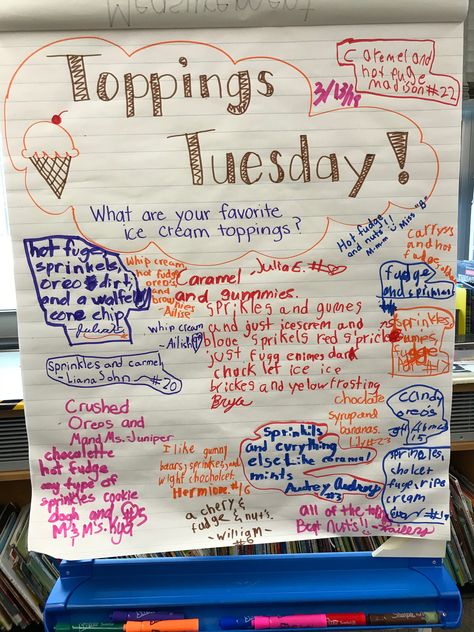 Measurement
Toppings
Tuesday!
3/13/18
What are your favorite
ice cream toppings?
Caramel and
hot fuge
madison #22
Hot fudge
and nuts!!
Miss "B"
Carrys
and hot
fudge
hot fuge,
sprinkels,
oreo dirt,
and a walfel
cone chip
Whip cream
hot fudge
oreo's
and
brow
Ailise
whip cream
-Ailish
Caramel Julia E.
and gummies.
sprikles and gumes
and just icescrem and
bloue sprikels red sprickels
just fugg cnimes dark
chuck let ice ice
brickes and yellow frosting
Brya
fudge
and sprinkles
sprinkles
gumes
fudge
Sprinkles and carmel
-Liana John #20
chocolate
syrup and
bananas.
#23
Candy
oreo's
15
Crushed
Oreos and
M and Ms. Juniper
chocalette
hot fudge
my type of
sprinkles cookie
doah and #5
M's & M's. kyd
I like gummy
bears, sprinkles, and
wight chocholet.
Hermione. #16
Sprinkils
and evrything
else Like caramal
mints
Audrey Audrey
#3
sprinkles,
choclet
fuge, wipe
cream
a chery &
fudge & nuts.
-William-
#6
all of the top
But nuts!!